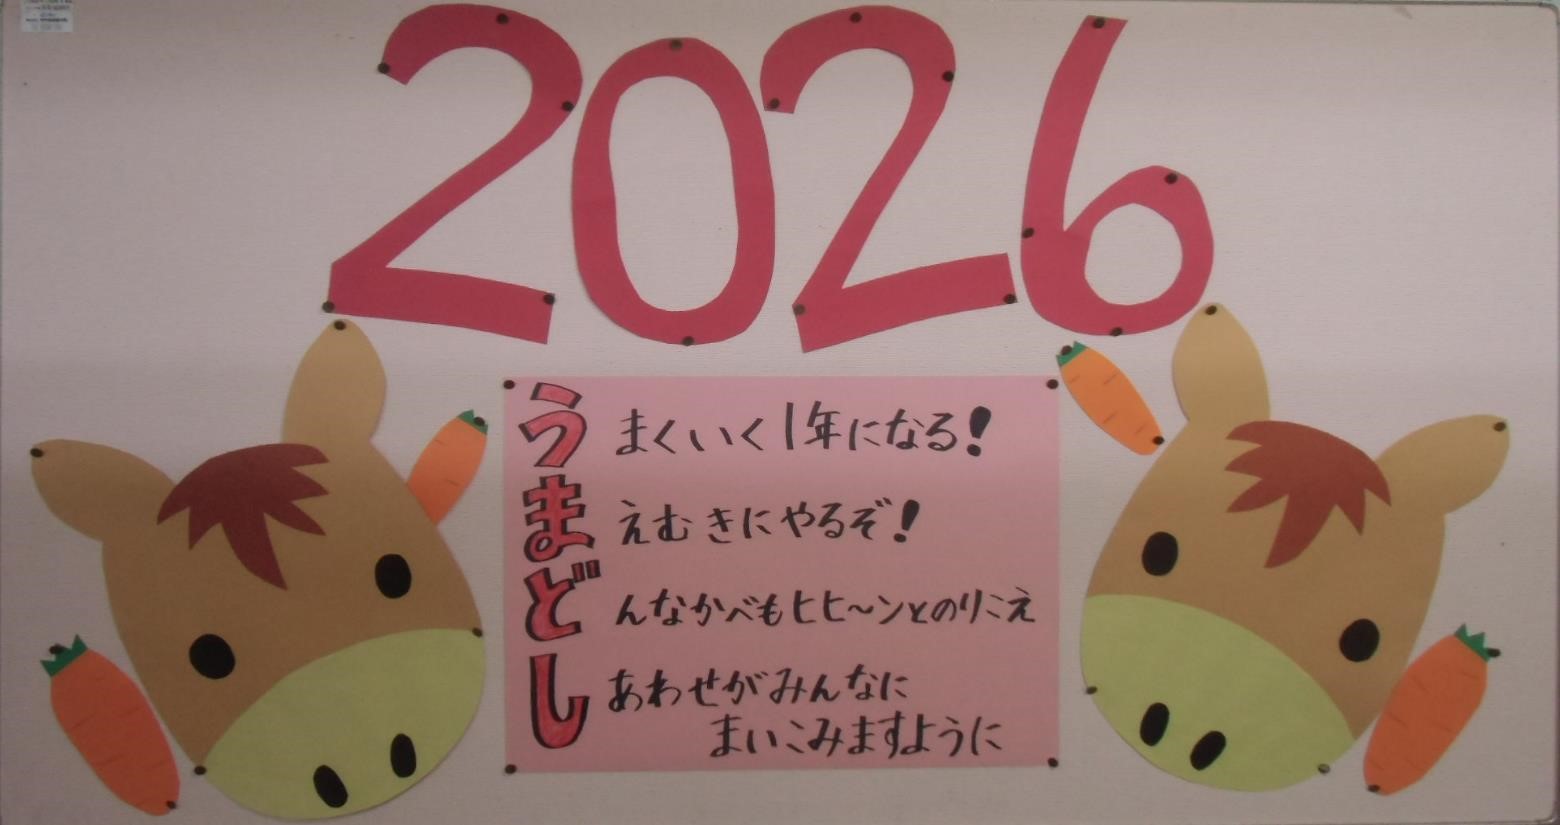 2026
うまくいく1年になる!
まえむきにやるぞ!
どんなかべもヒヒ〜ンとのりこえ
しあわせがみんなに
まいこみますように